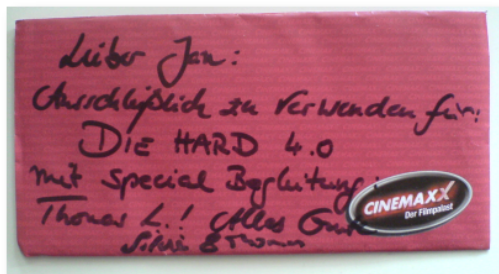 Lieber Jan:
Ausschließlich zu verwenden für:
DIE HARD 4.0
mit special Begleitung:
Thomas L.! Alles Gute
Silvia & Thomas
CINEMAXX
Der Filmpalast